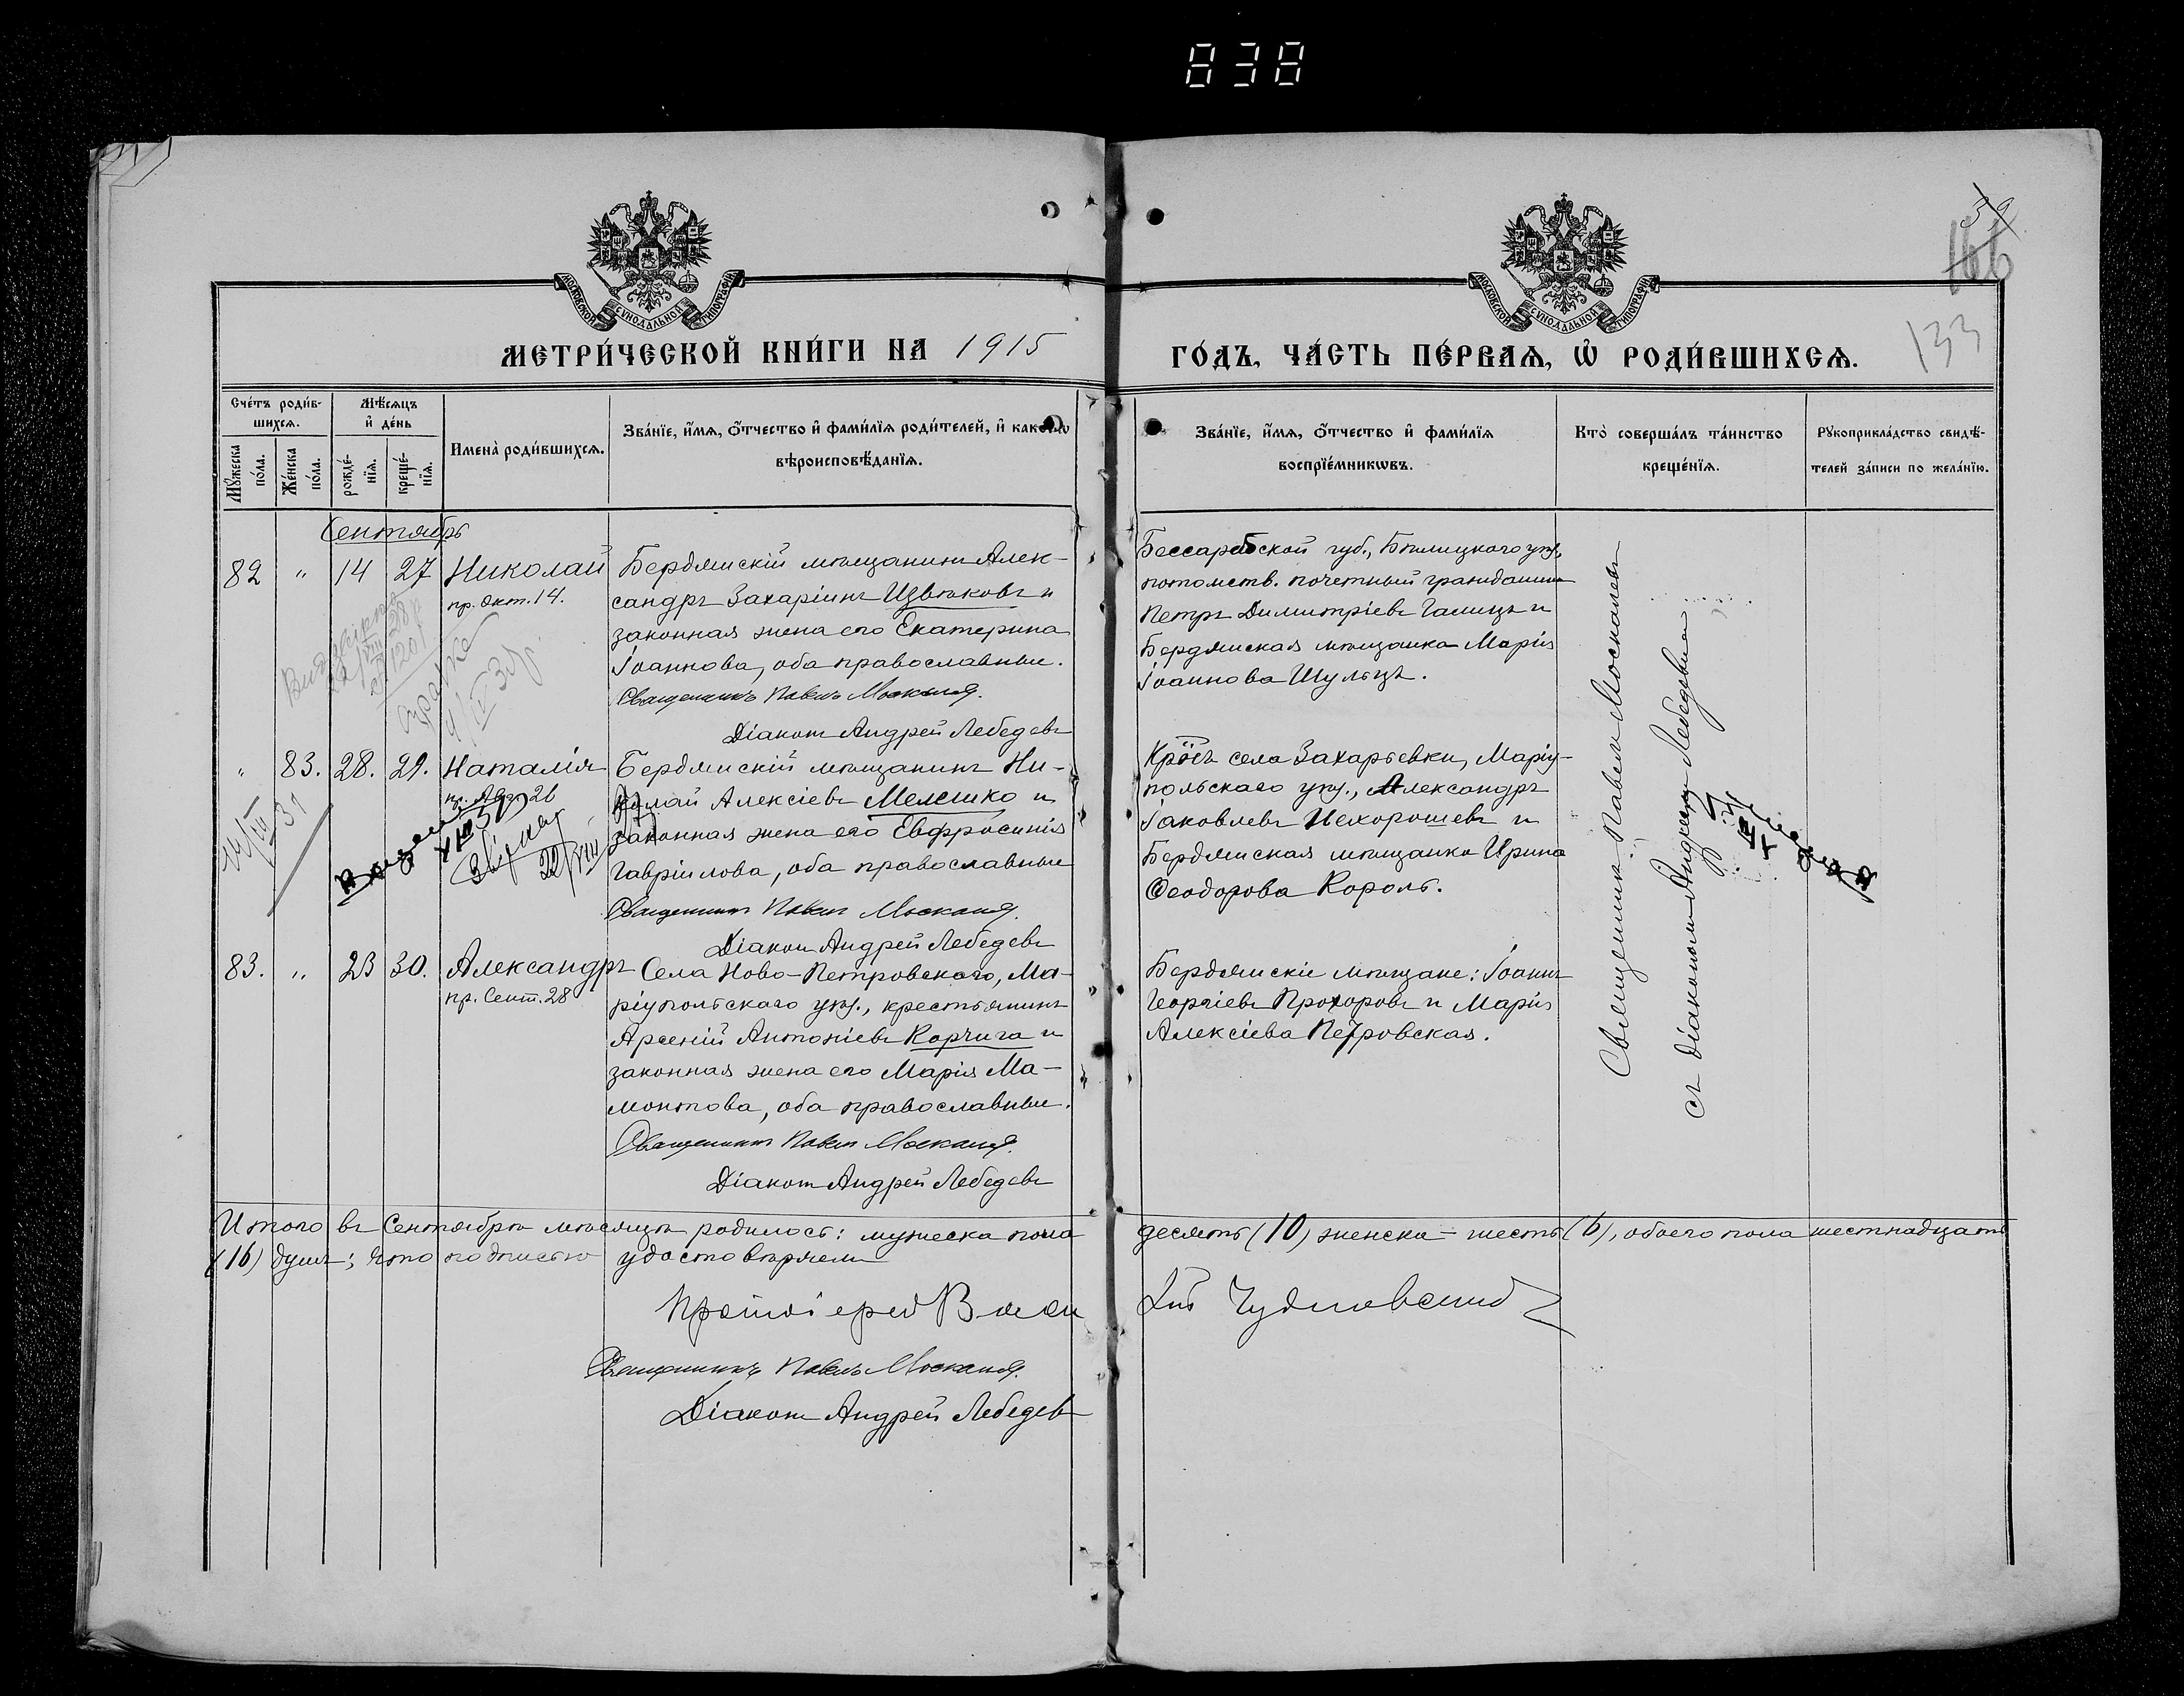 838
39
166
133
МОСКОВСКОЙ СѴНОДАЛЬНОЙ ТИПОГРАФІИ
МОСКОВСКОЙ СѴНОДАЛЬНОЙ ТИПОГРАФІИ
МЕТРИ́ЧЕСКОЙ КНИ́ГИ НА 1915
ГО́ДЪ, ЧА́СТЬ ПЕ́РВАѦ, Ѿ РОДИ́ВШИХСѦ.
Сче́тъ роди́в-
шихсѧ.
Мꙋ́жеска
по́ла.
Же́нска
по́ла.
Мѣ́сѧцъ
и҆ де́нь
рожде́-
нїѧ.
креще́-
нїѧ.
Имена̀ роди́вшихсѧ.
Зва́нїе, и҆́мѧ, ѻ҆́тчество и҆ фами́лїѧ роди́телей, и҆ како́гѡ
вѣроисповѣ́данїѧ.
Зва́нїе, и҆́мѧ, ѻ҆́тчество и҆ фами́лїѧ
воспрїе́мникѡвъ.
Кто̀ соверша́лъ та́инство
креще́нїѧ.
Рꙋкоприкла́дство свидѣ́-
телей за́писи по жела́нїю.
Сентябрь
82 " 14 27 Николай
пр. Окт. 14.
Бердянскій мѣщанинъ Алек-
сандръ Захаріинъ Цвѣтковъ и
законная жена его Екатерина
Іоаннова, оба православные.
Священникъ Павелъ Москалев.
Діаконъ Андрей Лебедевъ
Бессарабской губ., Бѣлицкого уѣз.,
потомств. почетный гражданинъ
Петръ Димитріевъ Галицъ и
Бердянская мѣщанка Марія
Іоаннова Шульцъ.
" 83. 28. 29. Наталія
пр. Авг. 26
Бердянскій мѣщанинъ Ни-
колай Алексіевъ Мелешко и
законная жена его Евфросинія
Гавріилова, оба православные
Священникъ Павелъ Москалев.
Діаконъ Андрей Лебедевъ
Кр-нъ села Захарьевки, Маріу-
польскаго уѣз., Александръ
Іаковлевъ Нехорошевъ и
Бердянская мѣщанка Ирина
Ѳеодорова Король.
14/III 31
22/VIII
83. " 23 30. Александръ
пр. Сент. 28
Села Ново-Петровскаго, Ма-
ріупольскаго уѣз., крестьянинъ
Арсеній Антоніевъ Корчига и
законная жена его Марія Ма-
монтова, оба православные.
Священникъ Павелъ Москалев.
Діаконъ Андрей Лебедевъ
Бердянскіе мѣщане: Іоаннъ
Георгіевъ Прохоровъ и Марія
Алексіева Петровская.
Священникъ Павелъ Москалевъ
съ діакономъ Андреемъ Лебедевымъ
Итого въ Сентябрѣ мѣсяцѣ родилось: мужеска пола десять (10) женска – шесть (6), обоего пола шестнадцать
(16) душъ; что подписью удостовѣряемъ
Протоіерей
Священникъ Павелъ Москалев.
Діаконъ Андрей Лебедевъ